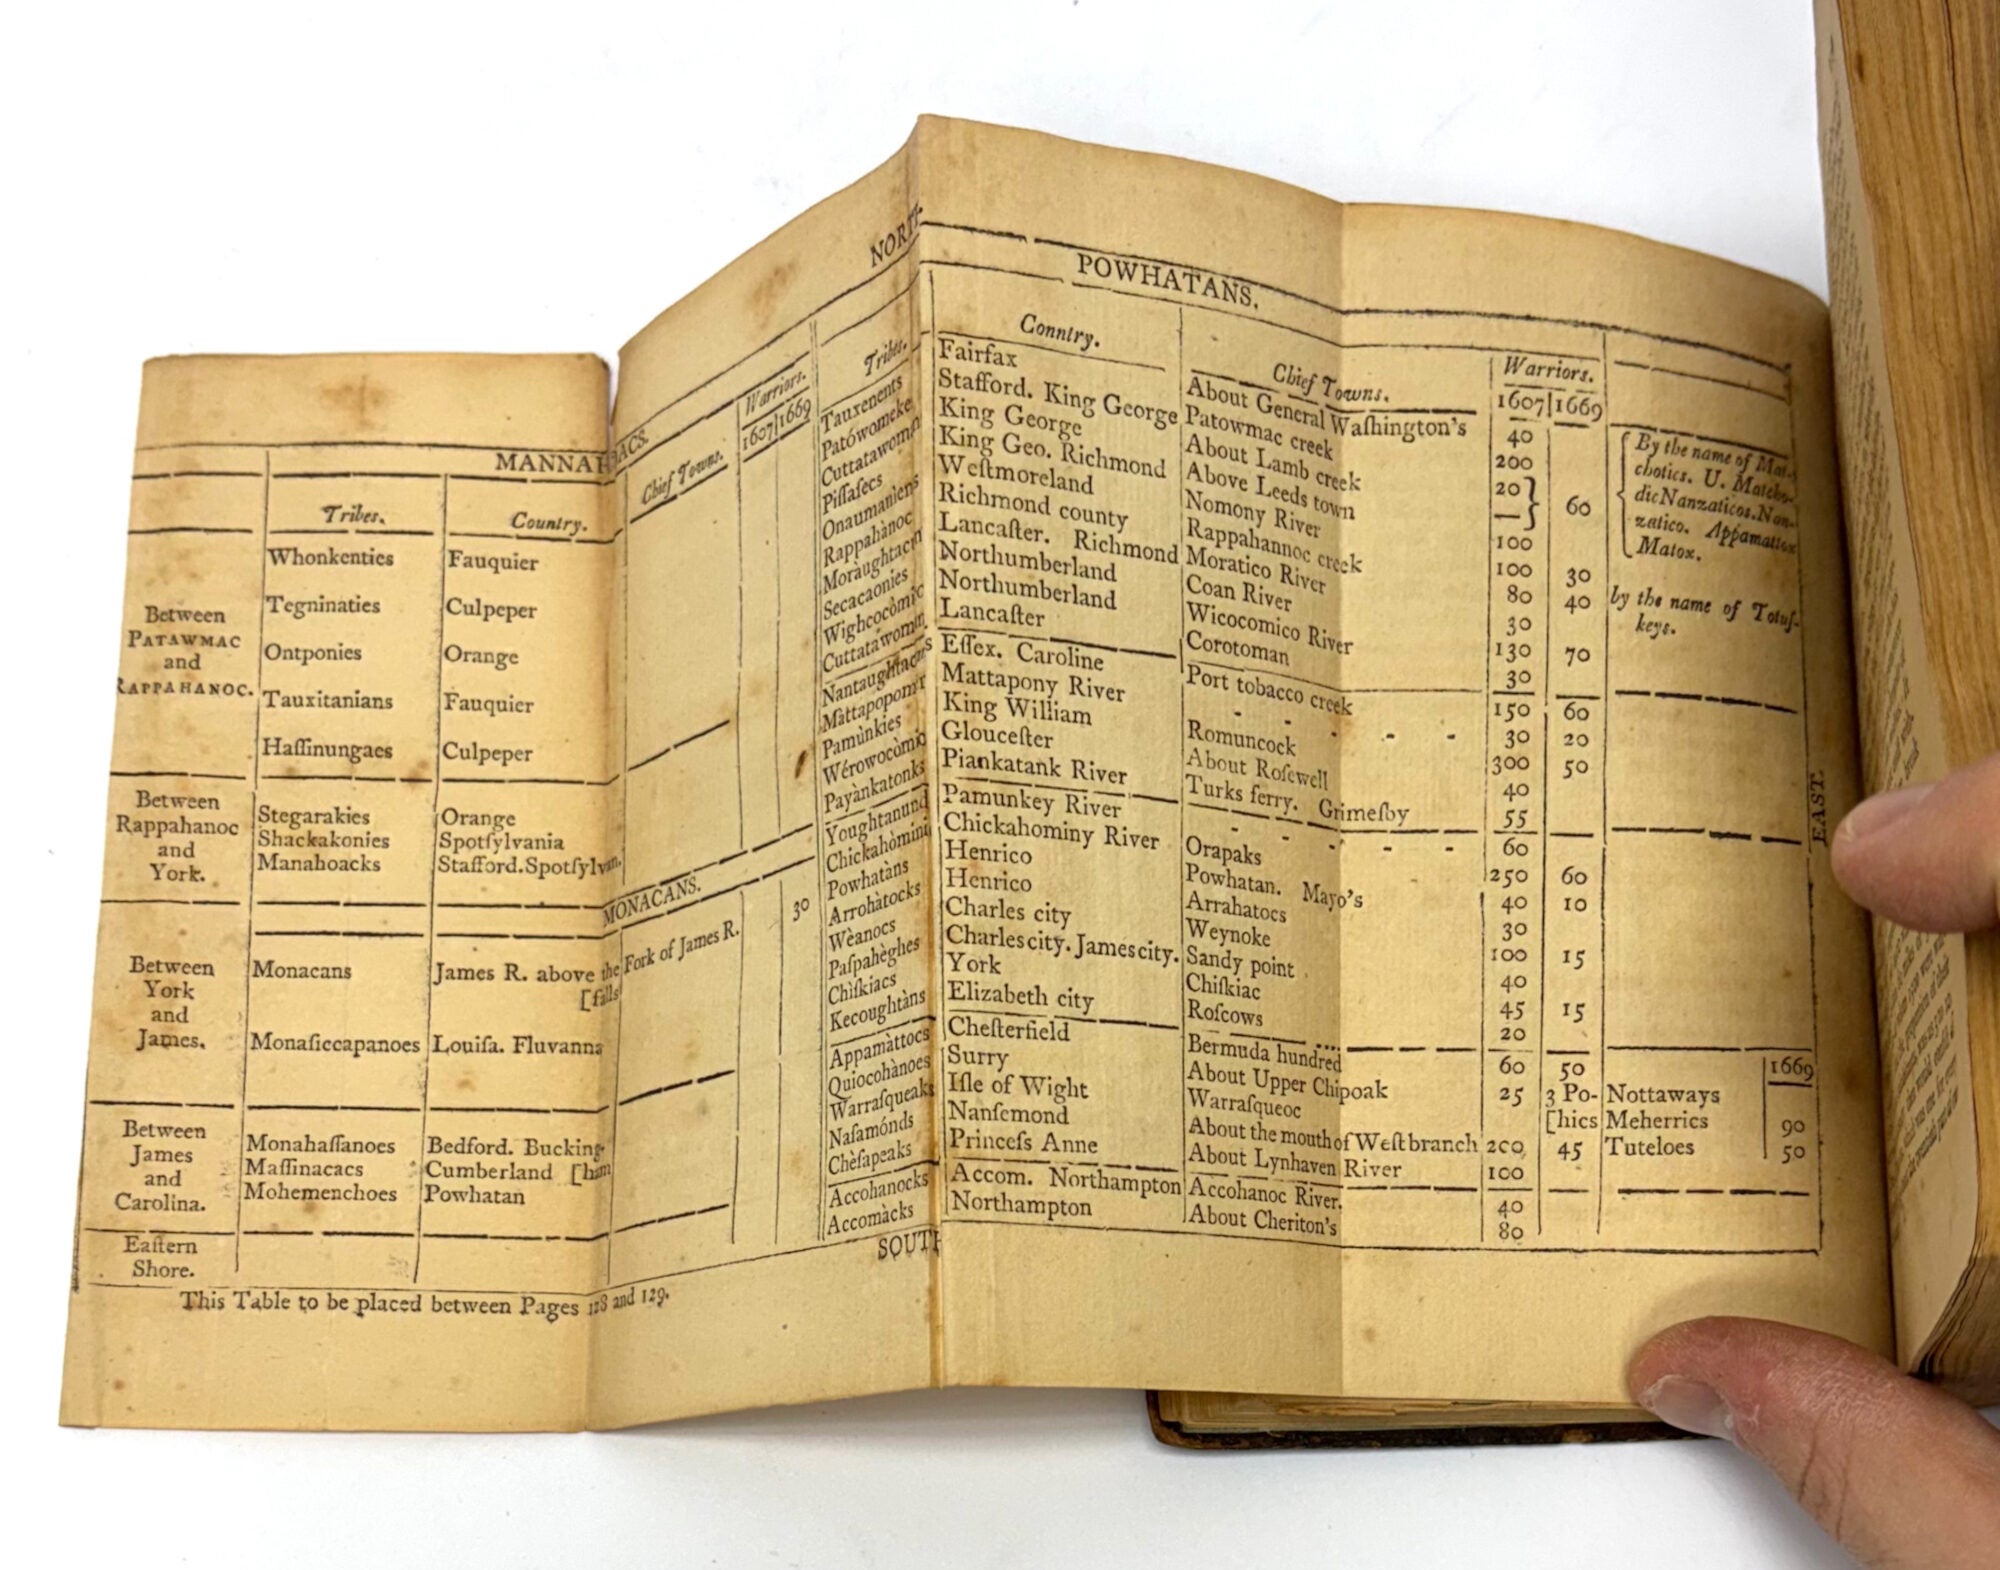 NORTH.
MANNAHOACS.
POWHATANS.
Tribes.
Country.
Chief Towns.
Warriors.
1607|1669
Between
PATAWMAC
and
RAPPAHANOC.
Whonkenties Fauquier
Tegninaties Culpeper
Ontponies Orange
Tauxitanians Fauquier
Haſſinungaes Culpeper
Between
Rappahanoc
and
York.
Stegarakies Orange
Shackakonies Spotſylvania
Manahoacks Stafford.Spotſylvan.
MONACANS.
Between
York
and
James.
Monacans James R. above the Fork of James R. 30
[falls
Monaſiccapanoes Louiſa. Fluvanna
Between
James
and
Carolina.
Monahaſſanoes Bedford. Bucking-
Maſſinacacs Cumberland [ham
Mohemenchoes Powhatan
Eaſtern
Shore.
This Table to be placed between Pages 128 and 129.
Tribes.
Conntry.
Chief Towns.
Warriors.
1607|1669
Tauxenents Fairfax About General Waſhington's 40
Patówomeke Stafford. King George Patowmac creek 200
Cuttatawomen King George About Lamb creek 20
Piſſaſecs King Geo. Richmond Above Leeds town — 60
Onaumaniens Weſtmoreland Nomony River 100
Rappahànoc Richmond county Rappahannoc creek 100 30
Moràughtacund Lancaſter. Richmond Moratico River 80 40
Secacaonies Northumberland Coan River 30
Wighcocòmico Northumberland Wicocomico River 130 70
Cuttatáwomin Lancaſter Corotoman 30
Nantaughtacunds Eſſex. Caroline Port tobacco creek 150 60
Màttapopomént Mattapony River - - - - 30 20
Pamùnkies King William Romuncock 300 50
Wérowocòmico Glouceſter About Roſewell 40
Payànkatonks Piankatank River Turks ferry. Grimeſby 55
Youghtanund Pamunkey River - - - - 60
Chickahòminies Chickahominy River Orapaks 250 60
Powhatàns Henrico Powhatan. Mayo's 40 10
Arrohàtocks Henrico Arrahatocs 30
Wèanocs Charles city Weynoke 100 15
Paſpahèghes Charles city. James city. Sandy point 40
Chìſkiacs York Chiſkiac 45 15
Kecoughtàns Elizabeth city Roſcows 20
Appamàttocs Cheſterfield Bermuda hundred 60 50
Quiocohànoes Surry About Upper Chipoak 25 3 Po-
[hics
Warraſqueaks Iſle of Wight Warraſqueoc
Naſamónds Nanſemond About the mouth of Weſt branch 200 45
Chèſapeaks Princeſs Anne About Lynhaven River 100
Accohanocks Accom. Northampton Accohanoc River. 40
Accomàcks Northampton About Cheriton's 80
By the name of Mat-
chotics. U. Matcho-
dic Nanzaticos. Nan-
zatico. Appamattox
Matox.
by the name of Totuſ-
keys.
1669
Nottaways
Meherrics 90
Tuteloes 50
EAST.
SOUTH